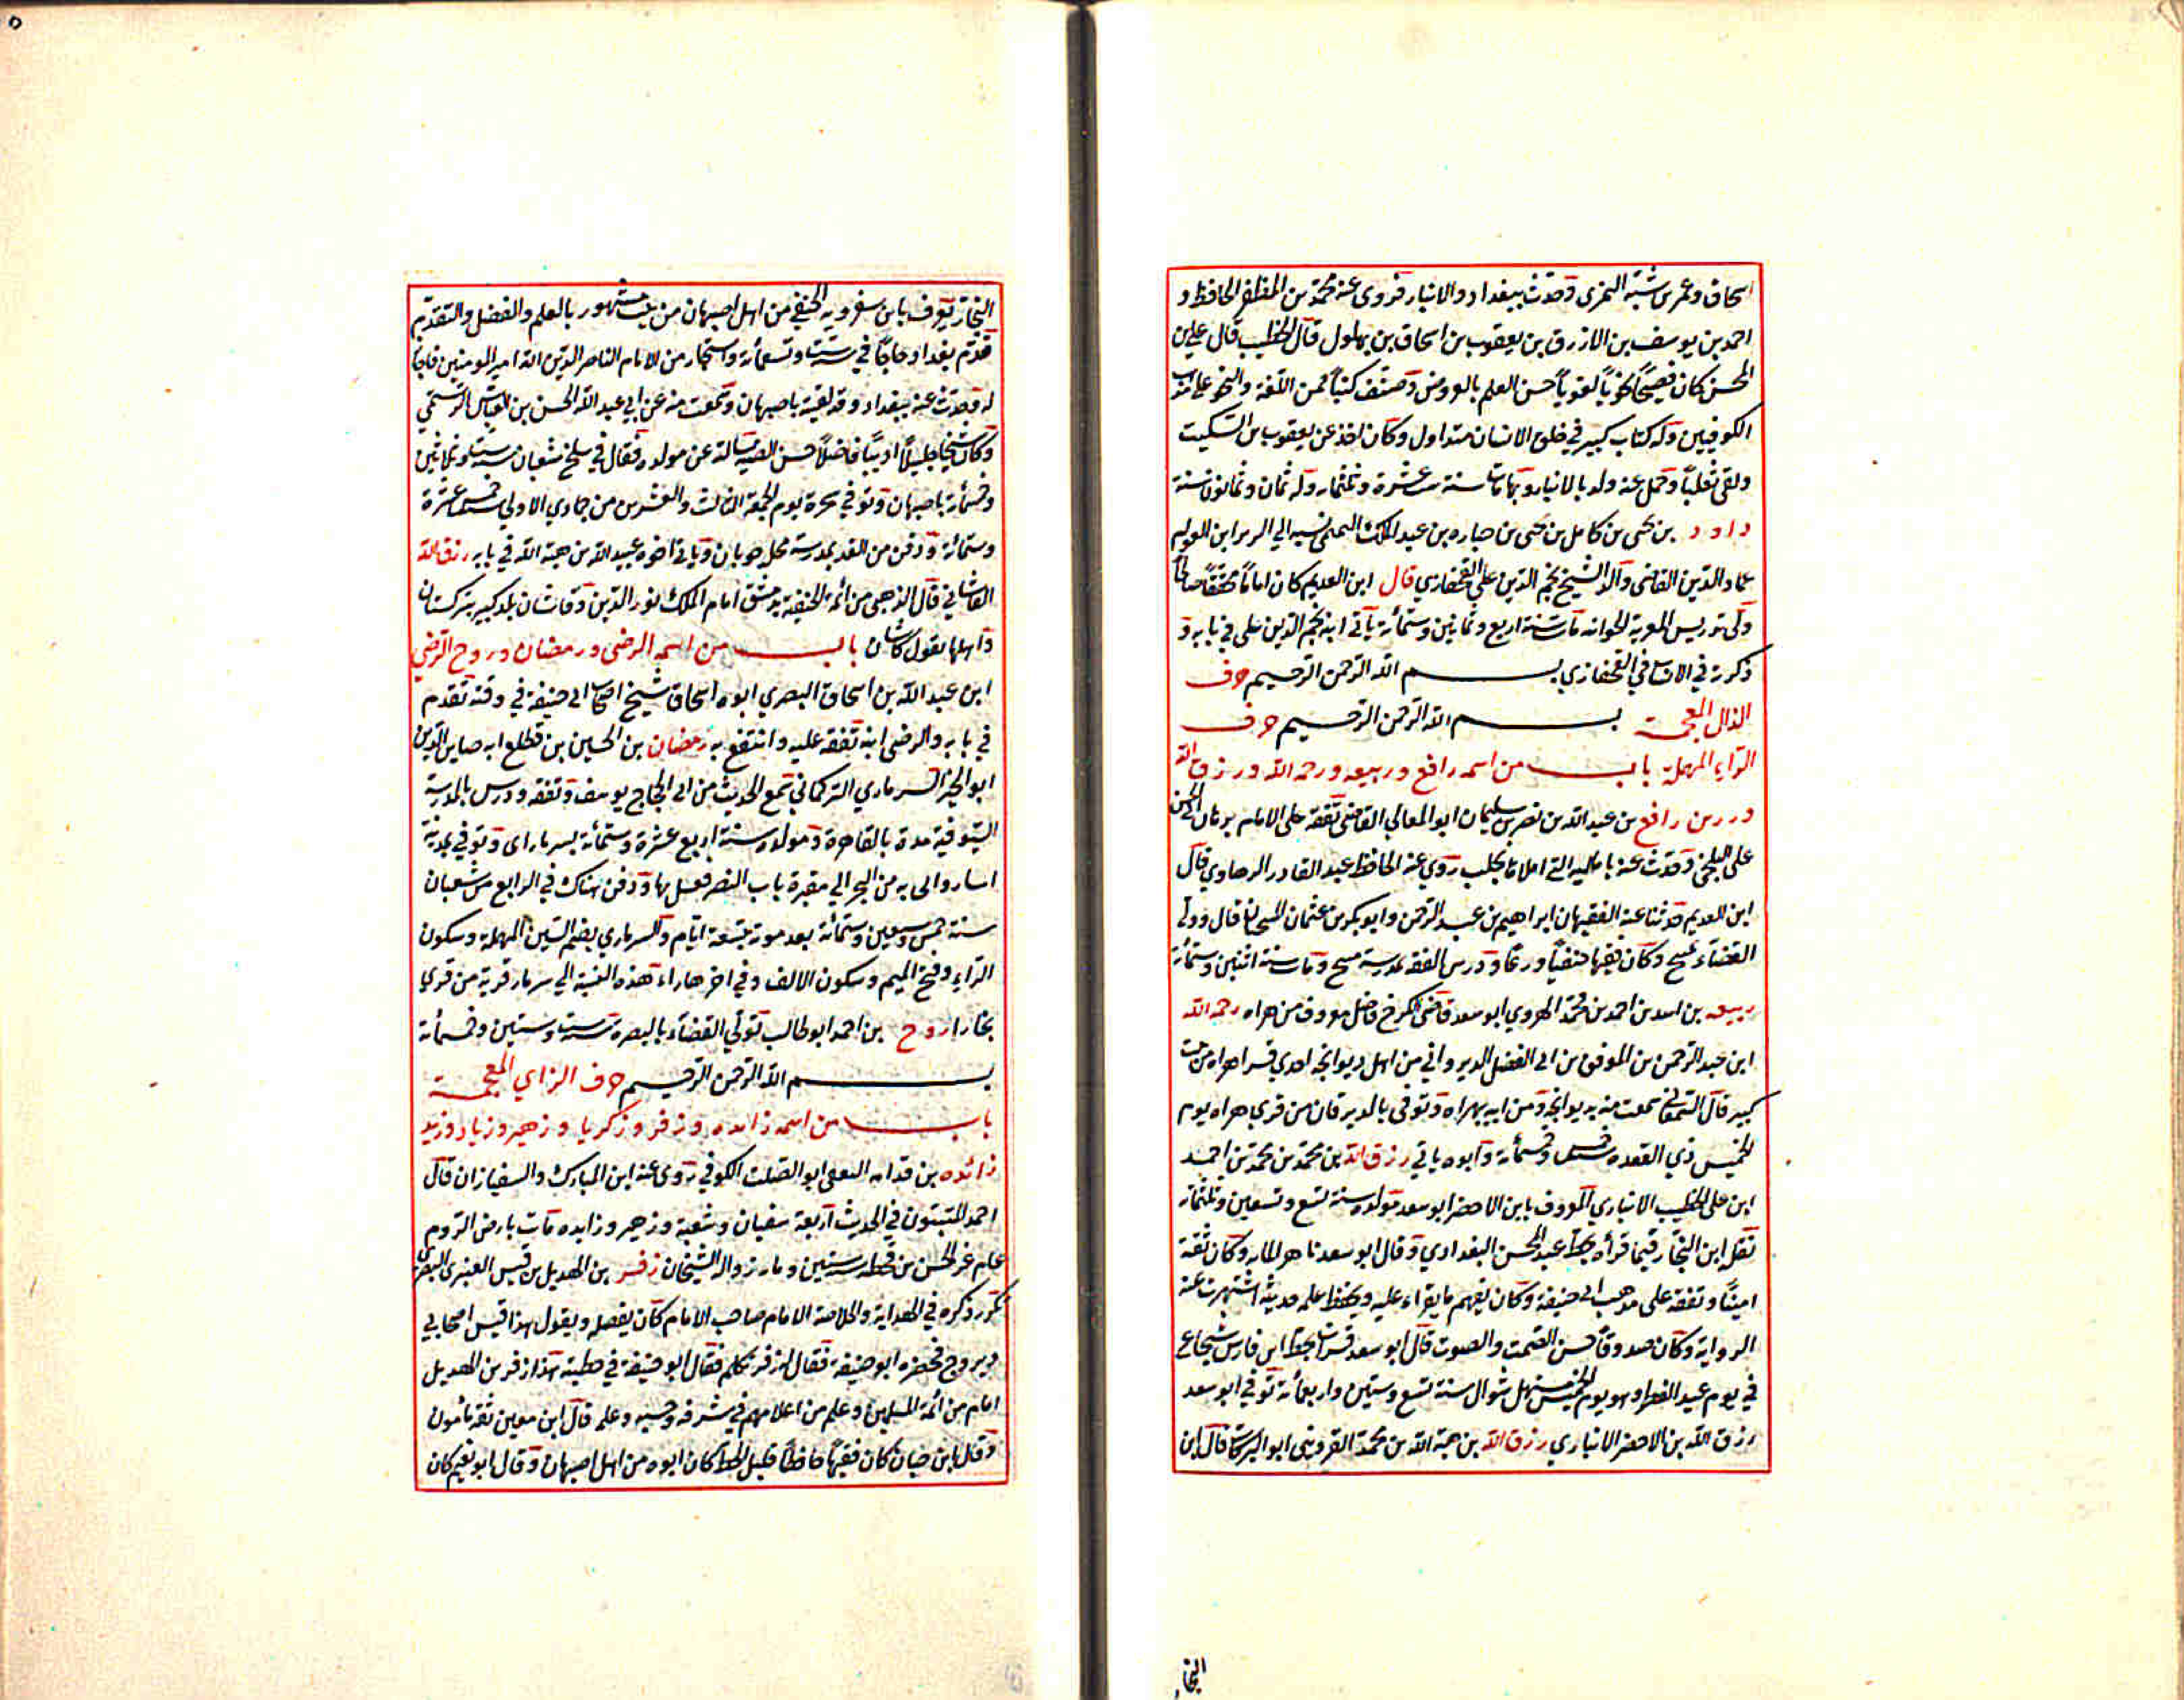 اسحاق وعمر بن شبه النمري وحدث ببغداد والانبار فروى عنه محمد بن المظفر الحافظ و
احمد بن يوسف بن الازرق بن يعقوب بن اسحاق بن بهلول قال الخطيب قال علي بن
المحسن كان فصيحا نحويا لغويا حسن العلم بالعروض وصنف كتبا من اللغة والنحو على مذهب
الكوفيين وله كتاب كبير في خلق الانسان متداول وكان اخذ عن يعقوب بن السكيت
ولقي ثعلبا وحمل عنه ولد بالانبار وبها مات سنة ست عشرة وثلثمائه وله ثمان وثمانون سنة
داود بن يحيى بن كامل بن يحيى بن جباره بن عبد الملك نسبه الى الزبير ابن العوام
عماد الدين القاضي والد الشيخ نجم الدين علي القحفازي قال ابن العديم كان اماما محققا صالحا
ولي تدريس المعزية الجوانيه مات سنة اربع وثمانين وستمائة ياتي ابنه نجم الدين علي في بابه و
ذكرته في الانساب في القحفازي بسم الله الرحمن الرحيم حرف
الذال المعجمة بسم الله الرحمن الرحيم حرف
الراء المهملة باب من اسمه رافع وربيعه ورحمة الله ورزق الله
رافع بن عبد الله بن نصر بن سليمان ابو المعالي القاضي تفقه على الامام برهان الدين ابي الحسن
علي البلخي وحدث عنه باماليه التي املاها بحلب روى عنه الحافظ عبد القادر الرهاوي قال
ابن العديم حدثنا عنه الفقيهان ابراهيم بن عبد الرحمن وابو بكر بن عثمان قال وولي
القضاء بمنبج وكان فقيها حنفيا ورعا ودرس الفقه بمدرسة منبج ومات سنة اثنتين وستمائة
ربيعه بن اسد بن احمد بن محمد الهروي ابو سعد قاضي الكرخ فاضل معروف من هراه رحمة الله
ابن عبد الرحمن بن الموفق بن ابي الفضل الديرواني من اهل ديوانجه احدى قرى هراه من بيت
كبير قال السمعاني سمعت منه بديوانجه ومن ابيه بهراه وتوفي بالديوقان من قرى هراه يوم
الخميس ذي القعده خمس وخمسمائة وابوه ياتي رزق الله بن محمد بن محمد بن احمد
ابن علي الخطيب الانباري المعروف بابن الاخضر ابو سعد مولده سنة تسع وتسعين وثلثمائة
نقله ابن النجار فيما قرأه بخط عبد المحسن البغدادي وقال ابو سعد وكان ثقة
امينا وتفقه على مذهب ابي حنيفة وكان يفهم ما يقراء عليه ويحفظ عامة حديثه اشتهرت عنه
الرواية وكان صدوقا حسن الصمت والصوت قال ابو سعد قرات بخط ابي فارس شجاع
في يوم عيد الفطر وهو يوم الخميس مستهل شوال سنة تسع وستين واربعمائة توفي ابو سعد
رزق الله بن الاخضر الانباري رزق الله بن هبة الله بن محمد القزويني ابو البركات قال ابن
النجا
٥
النجار يعرف بابن سفرويه الحنفي من اهل اصبهان من بيت مشهور بالعلم والفضل والتقدم
قدم بغداد حاجا في سنة ست وتسعمائة واستجاز من الامام الناصر لدين الله امير المومنين فاجاز
له وحدث عنه ببغداد وقد لقيته باصبهان وسمعت منه عن ابي عبد الله الحسن بن العباس الرستمي
وكان شيخا جليلا اديبا فاضلا حسن الهيئة سالته عن مولده فقال في سلخ شعبان سنة ست وثمانين
وخمسمائة باصبهان وتوفي بكرة يوم الجمعة الثالث والعشرين من جمادي الاولى خمس عشرة
وستمائة ودفن من الغد بمدرسة محله جوبان وياتي اخوه عبيد الله بن هبة الله في بابه رزق الله
القاشاني قال الذهبي من ائمة الحنفية بدمشق امام الملك نور الدين وقاشان بلد كبير بتركستان
واهلها يقول كاشان باب من اسمه الرضي ورمضان وروح الرضي
ابن عبد الله بن اسحاق البصري ابوه اسحاق شيخ اصحاب ابي حنيفة في وقته تقدم
في بابه والرضي ابنه تفقه عليه وانتفع به رمضان بن الحسين بن قطلع ابه صاين الدين
ابو الخير السرماري التركماني سمع الحديث من ابي الحجاج يوسف وتفقه ودرس بالمدرسة
السيوفية مدة بالقاهرة ومولده سنة اربع عشرة وستمائة بسرماراى وتوفي بمدينة
به من البحر الى مقبرة باب النصر فغسل بها ودفن هناك في الرابع من شعبان
سنة خمس وسبعين وستمائة بعد موته بتسعة ايام والسرماري بضم السين المهملة وسكون
الراء وفتح الميم وسكون الالف وفي اخرها راء هذه النسبة الى سرمار قرية من قرى
بخارا روح بن احمد ابو طالب تولي القضاء بالبصرة سنة ست وستين وخمسمائة
بسم الله الرحمن الرحيم حرف الزاي المعجمة
باب من اسمه زائده وزفر وزكريا وزهير وزياد وزيد
زائده بن قدامه الثقفي ابو الصلت الكوفي روى عنه ابن المبارك والسفيانان قال
احمد المتثبتون في الحديث اربعة سفيان وشعبة وزهير وزايده مات بارض الروم
عام غزا الحسن بن قحطبه سنة ستين وما روى له الشيخان زفر بن الهذيل بن قيس العنبري البصري
تكرر ذكره في الهداية والخلاصة الامام صاحب الامام كان يفضله ويقول هذا اقيس اصحابي
ويزوج فحضره ابو حنيفة فقال له زفر تكلم فقال ابو حنيفة في خطبته هذا زفر بن الهذيل
امام من ائمة المسلمين وعلم من اعلامهم في شرفه وحسبه وعلمه قال ابن معين ثقة مأمون
وقال ابن حبان كان فقيها حافظا قليل الخطا كان ابوه من اهل اصبهان وقال ابو نعيم كان